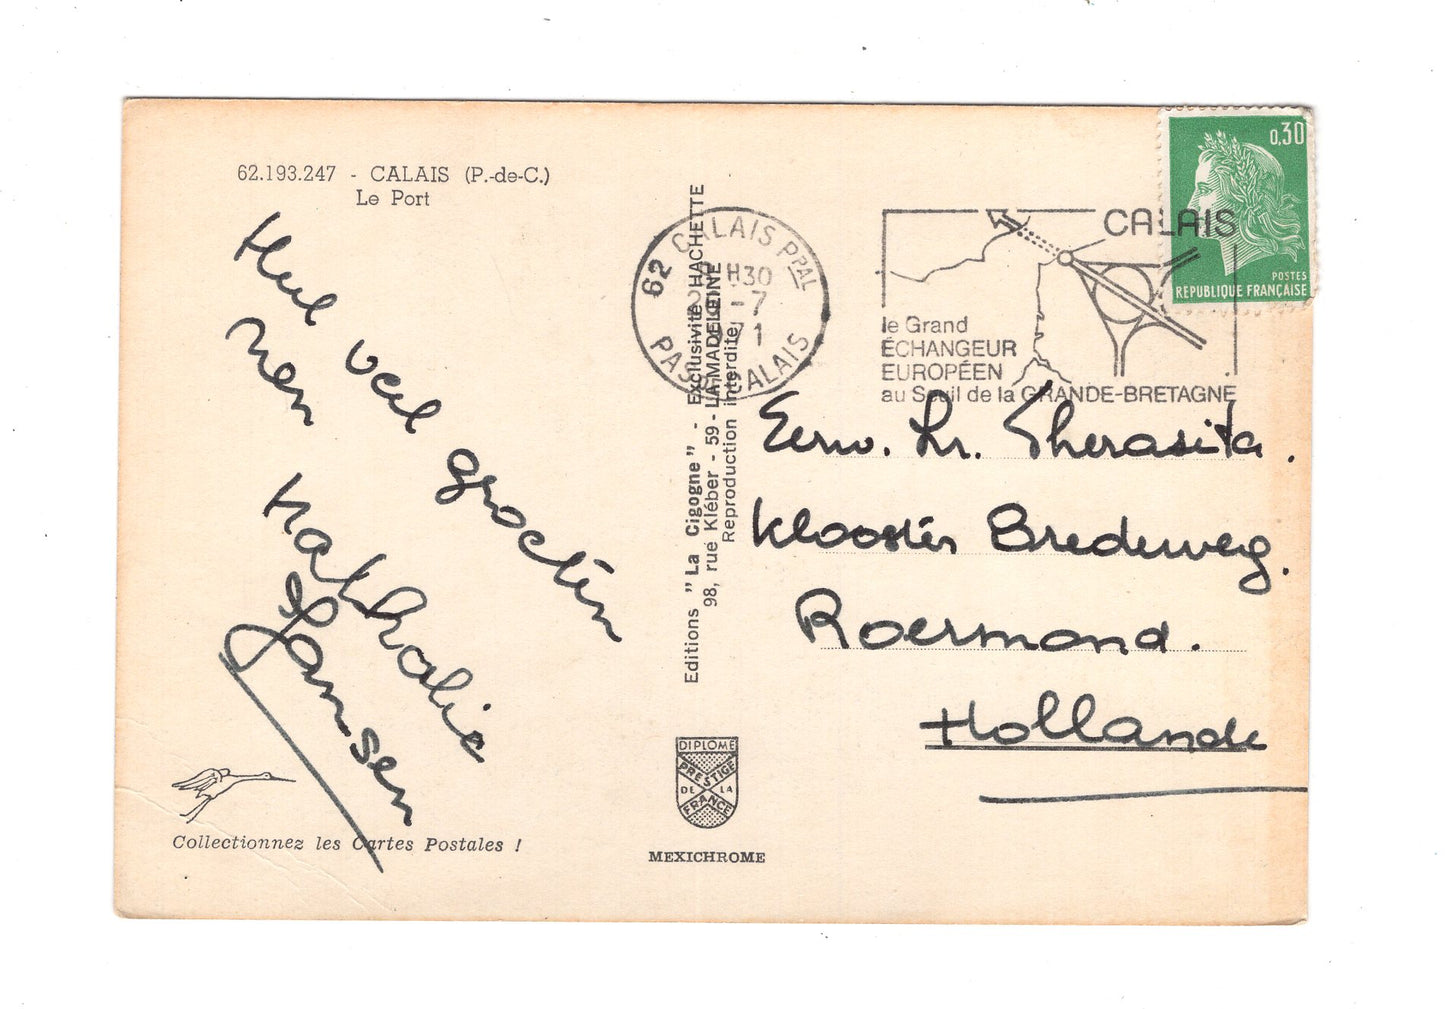 62.193.247 - CALAIS (P.-de-C.)
Le Port
Heel veel groeten
van
Nathalie
Jansen
Collectionnez les Cartes Postales !
Editions "La Cigogne" - Exclusivité HACHETTE
98, rue Kléber - 59 - LA MADELEINE
Reproduction interdite
DIPLOME
PRESTIGE
DE LA
FRANCE
MEXICHROME
62 CALAIS PPAL
H30
-7
1971
PAS CALAIS
CALAIS
le Grand
ÉCHANGEUR
EUROPÉEN
au Seuil de la GRANDE-BRETAGNE
0,30
POSTES
REPUBLIQUE FRANÇAISE
Eerw. Zr. Therasita.
Klooster Bredeweg.
Roermond.
Hollande